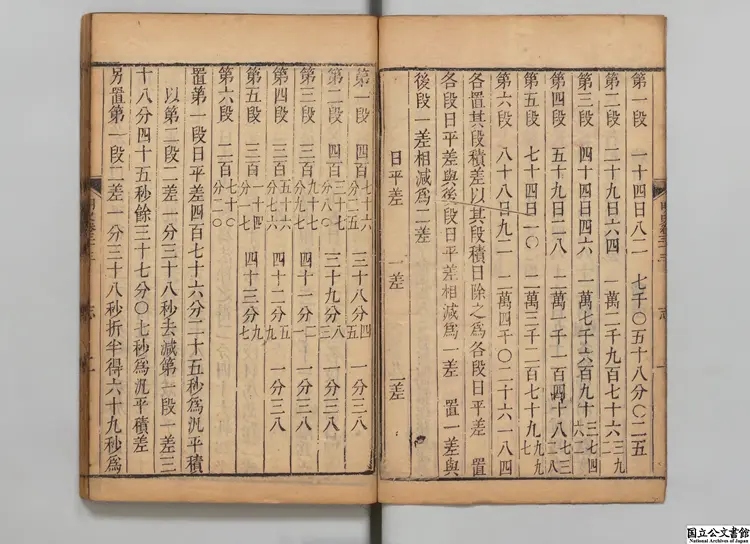 第一段　一十四日八二　七千〇五十八分〇二五
第二段　二十九日六四　一萬二千九百七十六三九二
第三段　四十四日四六　一萬七千六百九十三七四六二
第四段　五十九日二八　二萬一千一百四十八七三二八
第五段　七十四日一〇　二萬三千二百七十九九九七
第六段　八十八日九二　二萬四千〇二十六一八四
各置其段積差以其段積日除之爲各段日平差　置
各段日平差與後段日平差相減爲一差　置一差與
後段一差相減爲二差
日平差　一差　二差
第一段　四百七十六分二五　三十八分四五　一分三八
第二段　四百三十七分八〇　三十九分八三　一分三八
第三段　三百九十七分九七　四十一分二一　一分三八
第四段　三百五十六分七六　四十二分五九　一分三八
第五段　三百一十四分一七　四十三分九七
第六段　二百七十〇分二〇
置第一段日平差四百七十六分二十五秒爲汎平積
以第二段二差一分三十八秒去減第一段一差三
十八分四十五秒餘三十七分〇七秒爲汎平積差
另置第一段二差一分三十八秒折半得六十九秒爲
志
国立公文書館
National Archives of Japan